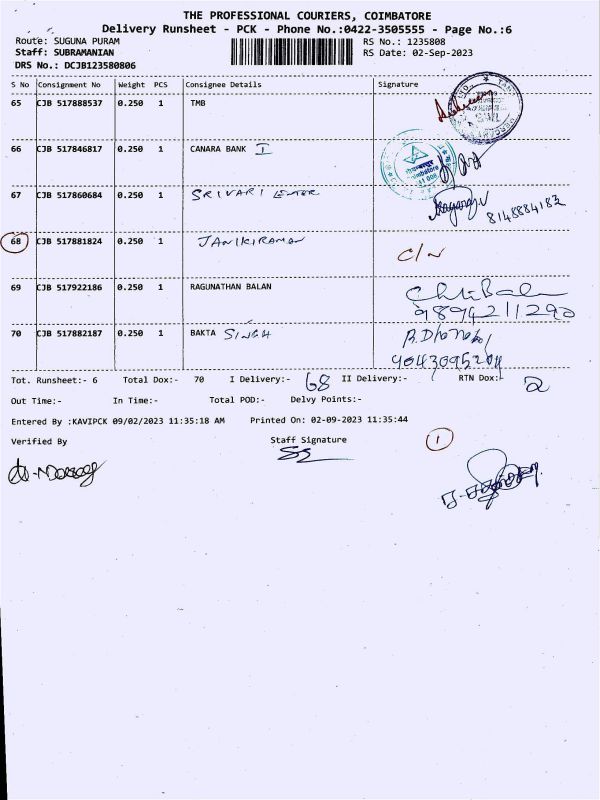 THE PROFESSIONAL COURIERS, COIMBATORE
Delivery Runsheet - PCK - Phone No.:0422-3505555 - Page No.:6
Route: SUGUNA PURAM RS No.: 1235808
Staff: SUBRAMANIAN RS Date: 02-Sep-2023
DRS No.: DCJB123580806
S No Consignment No Weight PCS Consignee Details Signature
65 CJB 517888537 0.250 1 TMB
66 CJB 517846817 0.250 1 CANARA BANK I
67 CJB 517860684 0.250 1 SRIVARI
8148884182
68 CJB 517881824 0.250 1 JANIKIRAMAN C/N
69 CJB 517922186 0.250 1 RAGUNATHAN BALAN
9894211290
70 CJB 517882187 0.250 1 BAKTA SINGH
Tot. Runsheet:- 6 Total Dox:- 70 I Delivery:- 68 II Delivery:- RTN Dox:- 2
Out Time:- In Time:- Total POD:- Delvy Points:-
Entered By :KAVIPCK 09/02/2023 11:35:18 AM Printed On: 02-09-2023 11:35:44
Verified By Staff Signature 1